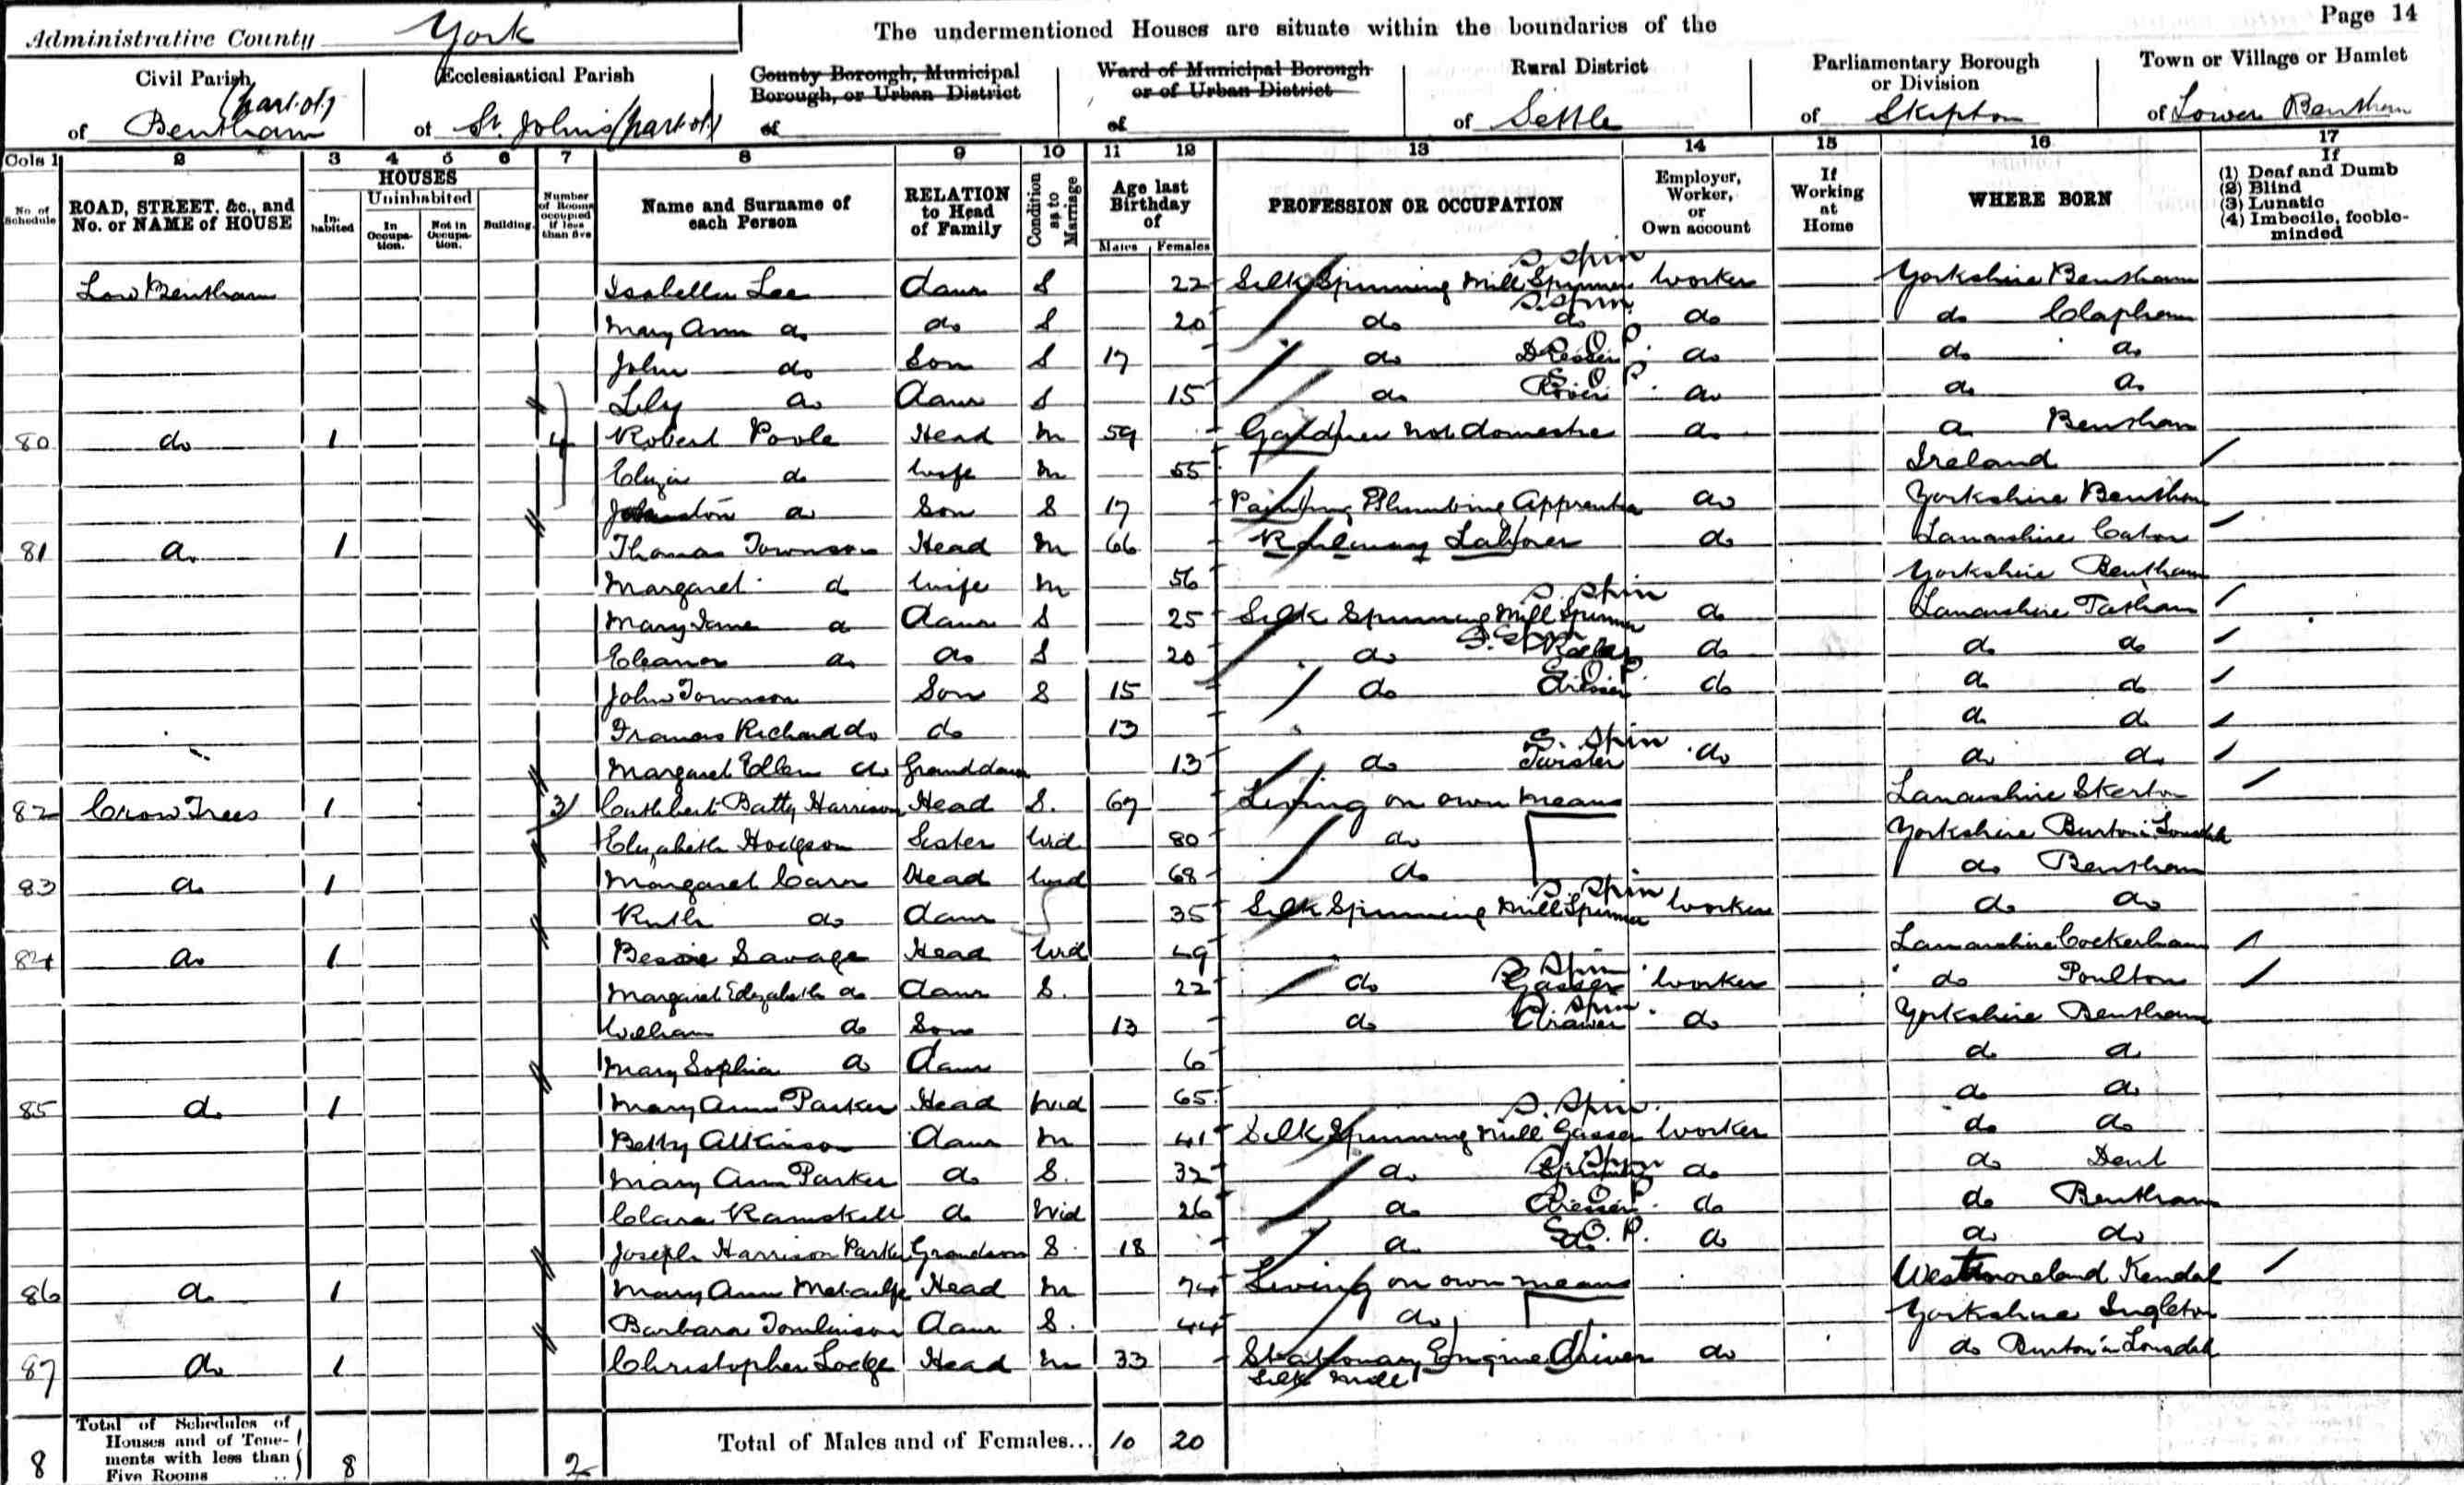 Page 14
Administrative County York
The undermentioned Houses are situate within the boundaries of the
Civil Parish (part of) of Bentham
Ecclesiastical Parish of St. Johns (part of)
County Borough, Municipal Borough, or Urban District of
Ward of Municipal Borough or of Urban District of
Rural District of Settle
Parliamentary Borough or Division of Skipton
Town or Village or Hamlet of Lower Bentham
Cols 1 2 3 4 5 6 7 8 9 10 11 12 13 14 15 16 17
No. of Schedule
ROAD, STREET, &c., and No. or NAME of HOUSE
HOUSES
In-habited
Uninhabited
In Occupa-tion.
Not in Occupa-tion.
Building.
Number of Rooms occupied if less than five
Name and Surname of each Person
RELATION to Head of Family
Condition as to Marriage
Age last Birthday of
Males Females
PROFESSION OR OCCUPATION
Employer, Worker, or Own account
If Working at Home
WHERE BORN
If
(1) Deaf and Dumb
(2) Blind
(3) Lunatic
(4) Imbecile, feeble-minded
Low Bentham Isabella Lee Daur S 22 Silk Spinning Mill Spinner S. Spin Worker Yorkshire Bentham
Mary Ann do do S 20 do do S. Spin do do Clapham
John do Son S 17 do Dresser do do do
Lily do Daur S 15 do do do do
80 do 1 4 Robert Poole Head M 59 Gardner not domestic do do Bentham
Eliza do Wife M 55 Ireland
do Son S 17 Painting Plumbing Apprentice do Yorkshire Bentham
81 do 1 Thomas Townson Head M 66 Railway Labourer do Lancashire Caton
Margaret do Wife M 56 Yorkshire Bentham
Mary Jane do Daur S 25 Silk Spinning Mill Spinner S. Spin do Lancashire Tatham
Eleanor do do S 20 do do do do
John Townson Son S 15 do Dresser do do do
Francis Richard do do 13 do do
Margaret Ellen do Granddaur 13 do Twister S. Spin do do do
82 Crow Trees 1 3 Cuthbert Batty Harrison Head S. 67 Living on own means Lancashire Skerton
Elizabeth Hodgson Sister Wid 80 do Yorkshire Burton in Lonsdale
83 do 1 Margaret Carr Head Wid 68 do do Bentham
Ruth do Daur 35 Silk Spinning Mill Spinner S. Spin Worker do do
84 do 1 Bessie Savage Head Wid 49 Lancashire Cockerham
Margaret Elizabeth do Daur S. 22 do Gasser S. Spin Worker do Poulton
William do Son 13 do Drawer S. Spin do Yorkshire Bentham
Mary Sophia do Daur 6 do do
85 do 1 Mary Ann Parker Head Wid 65 do do
Betty Atkinson Daur M 41 Silk Spinning Mill Gasser S. Spin. Worker do do
Mary Ann Parker do S. 32 do S. Spin do do Dent
Clara Ramskill do Wid 26 do Dresser do do Bentham
Joseph Harrison Parker Grandson S. 18 do do S.O.P. do do do
86 do 1 Mary Ann Metcalfe Head M 74 Living on own means Westmoreland Kendal
Barbara Tomlinson Daur S. 44 do Yorkshire Ingleton
87 do 1 Christopher Lodge Head M 33 Stationary Engine Driver Silk Mill do do Burton in Lonsdale
8 Total of Schedules of Houses and of Tene-ments with less than Five Rooms 8 2 Total of Males and of Females... 10 20